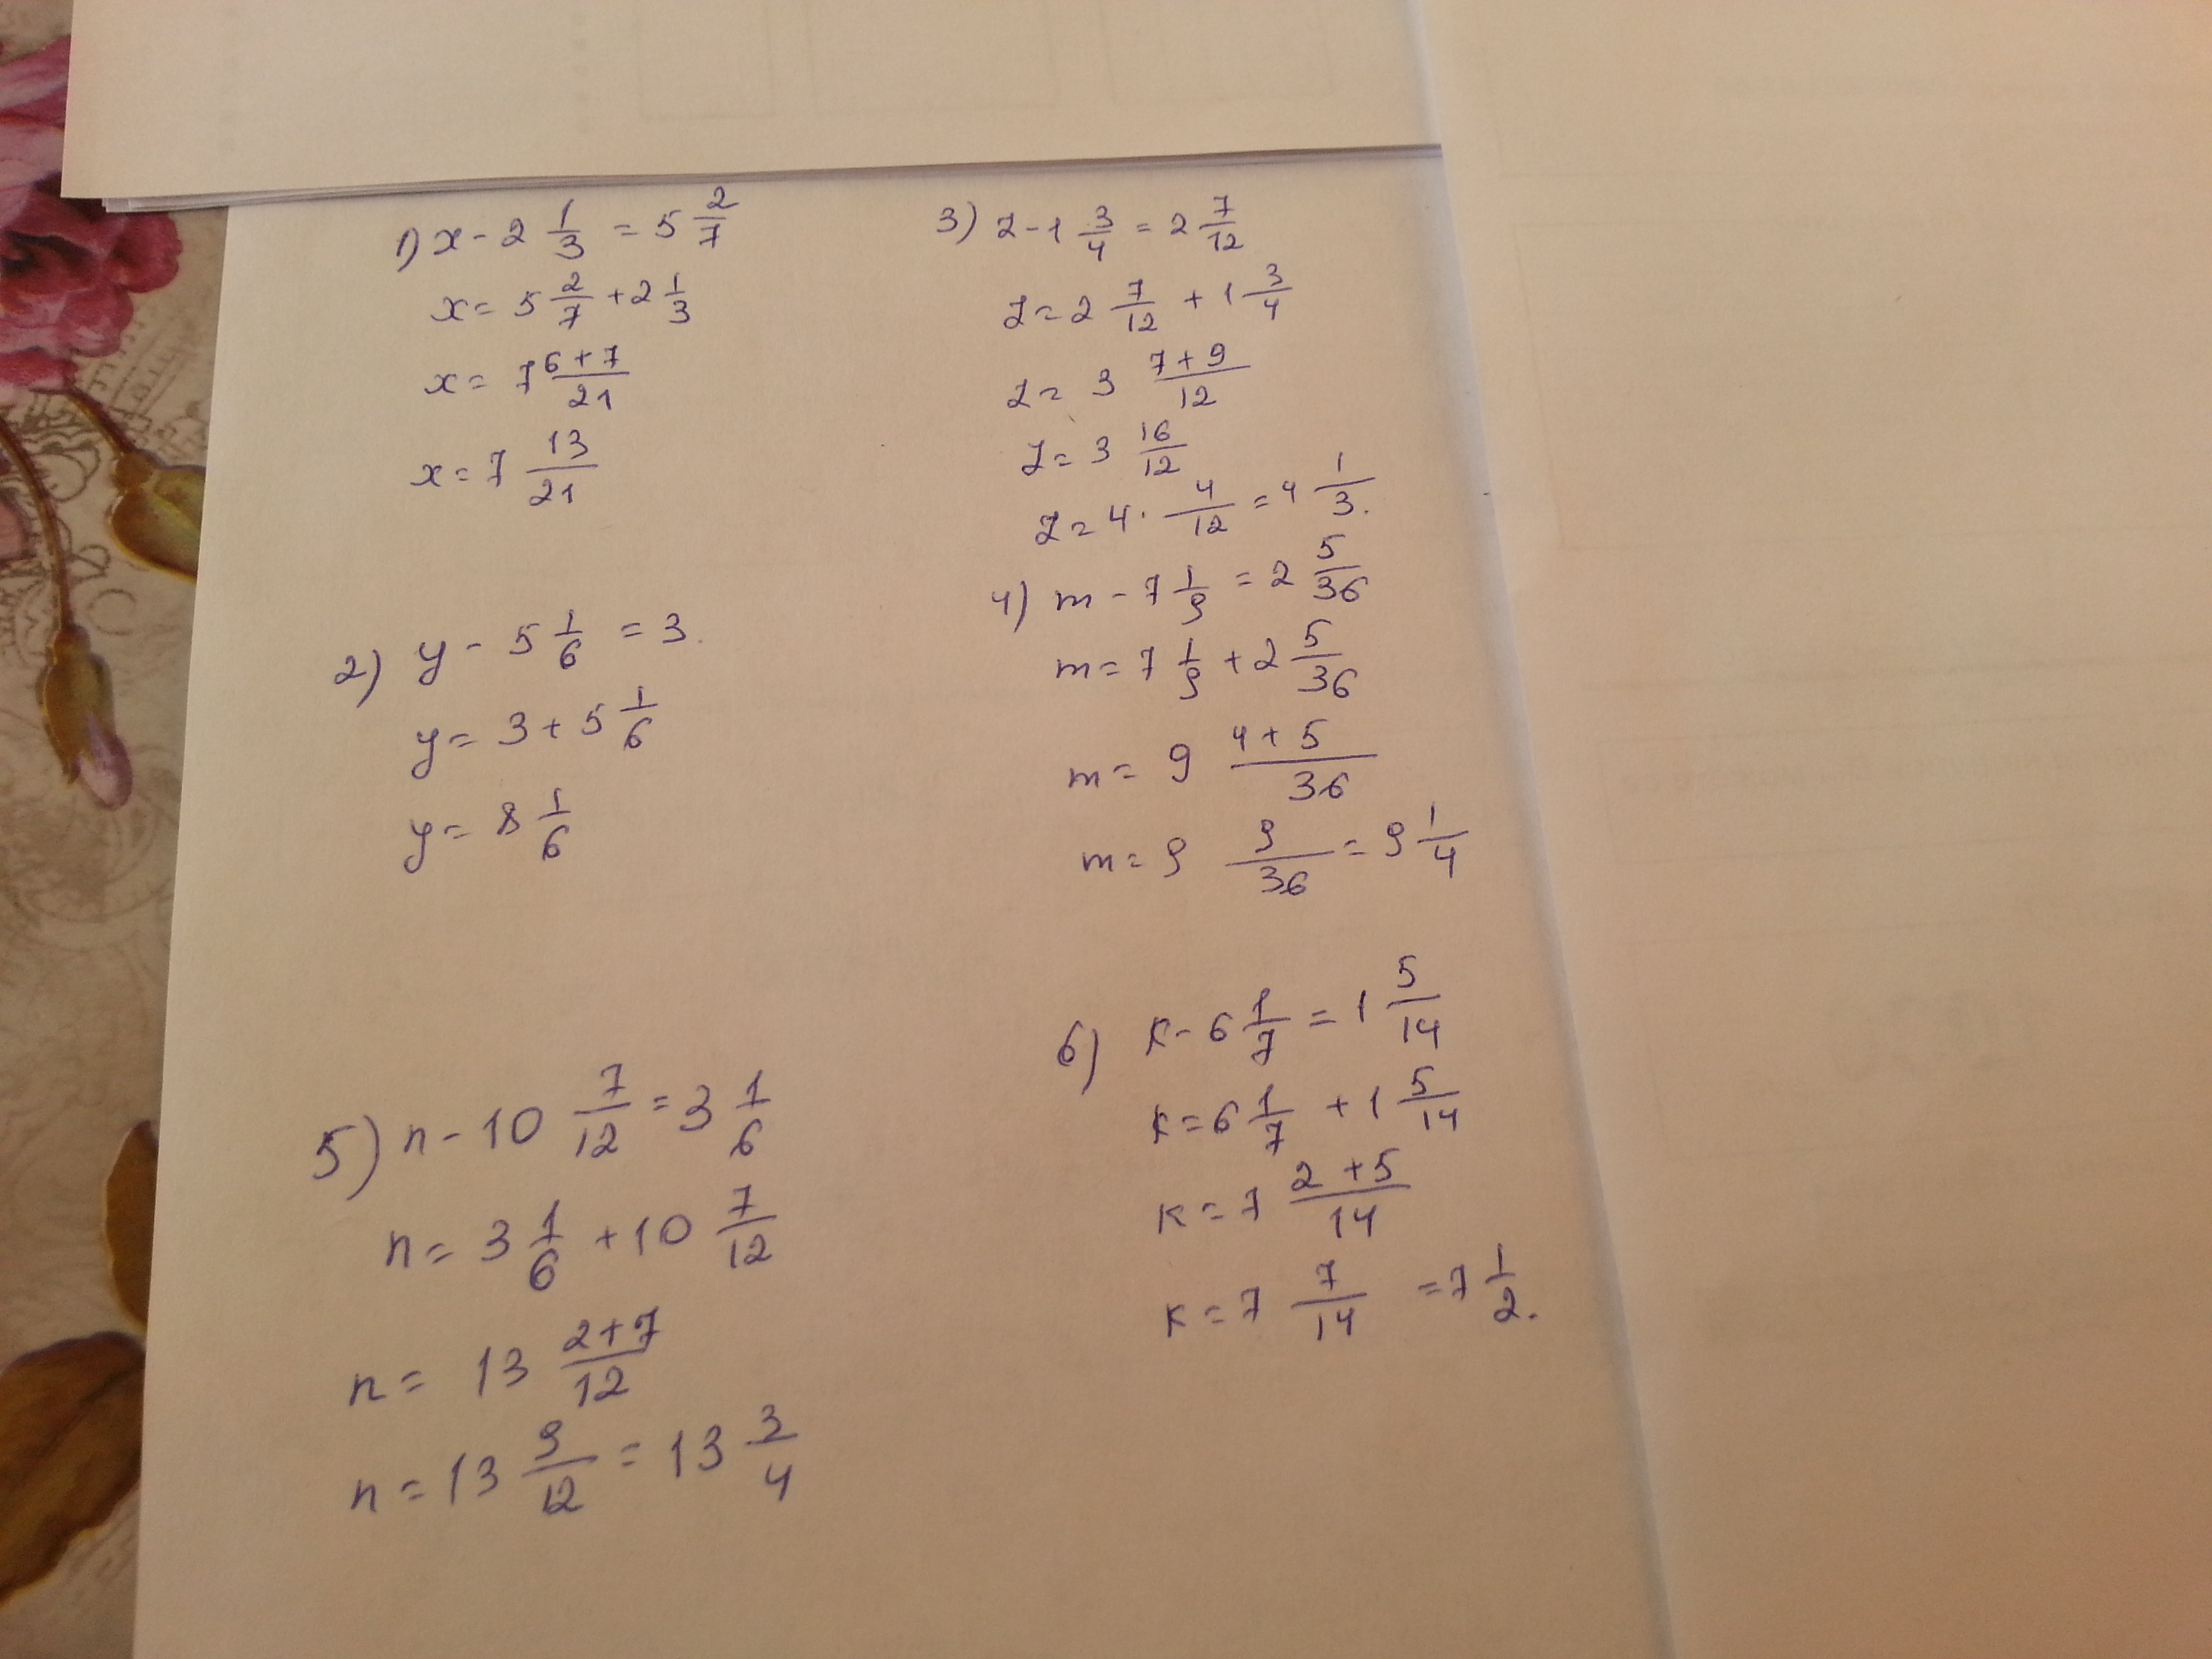 1) x - 2 1/3 = 5 2/7
x = 5 2/7 + 2 1/3
x = 7 6+7/21
x = 7 13/21
2) y - 5 1/6 = 3.
y = 3 + 5 1/6
y = 8 1/6
3) z - 1 3/4 = 2 7/12
z = 2 7/12 + 1 3/4
z = 3 7+9/12
z = 3 16/12
z = 4 · 4/12 = 4 1/3.
4) m - 7 1/9 = 2 5/36
m = 7 1/9 + 2 5/36
m = 9 4+5/36
m = 9 9/36 = 9 1/4
5) n - 10 7/12 = 3 1/6
n = 3 1/6 + 10 7/12
n = 13 2+7/12
n = 13 9/12 = 13 3/4
6) k - 6 1/7 = 1 5/14
k = 6 1/7 + 1 5/14
k = 7 2+5/14
k = 7 7/14 = 7 1/2.